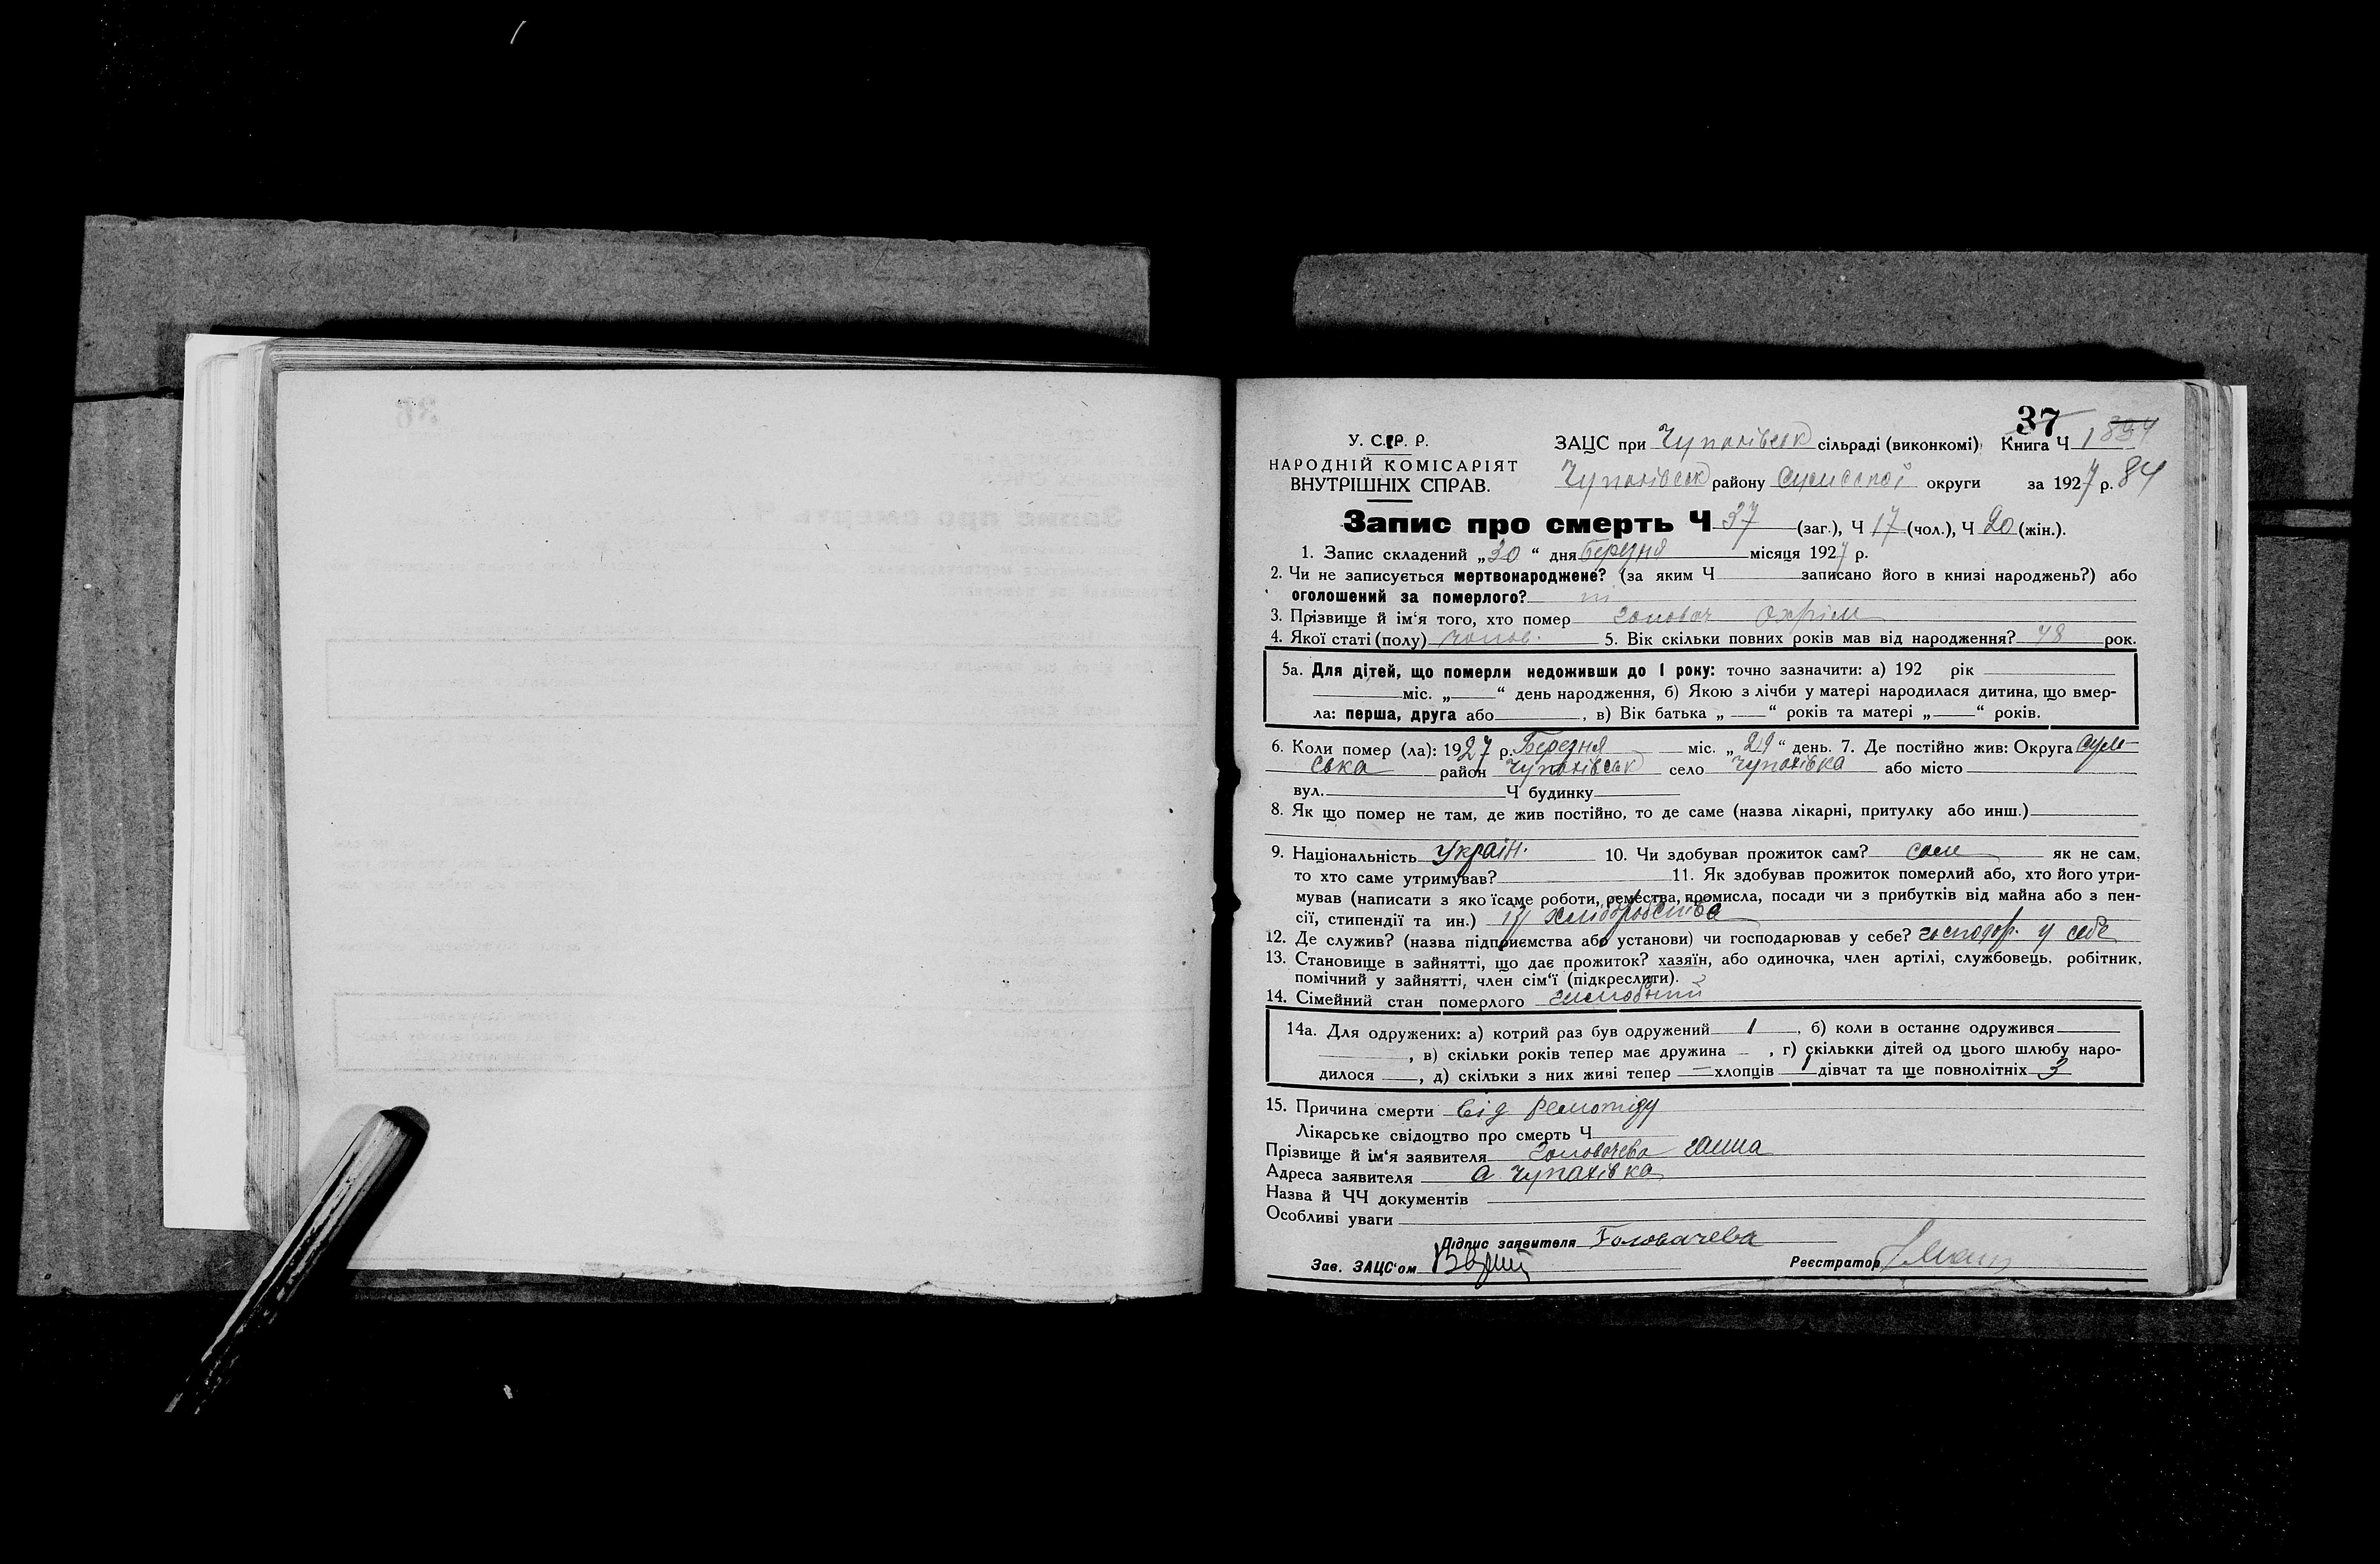 37
У. С. Р. Р.
ЗАЦС при Чупахівськ сільраді (виконкомі) Книга Ч 1 834
НАРОДНІЙ КОМІСАРІЯТ
ВНУТРІШНІХ СПРАВ.
Чупахівськ району Сумської округи за 1927 р. 84
Запис про смерть Ч 37 (заг.), Ч 17 (чол.), Ч 20 (жін.).
1. Запис складений „30“ дня Березня місяця 1927 р.
2. Чи не записується мертвонароджене? (за яким Ч записано його в книзі народжень?) або
оголошений за померлого? ні
3. Прізвище й ім‘я того, хто помер Головач Охрім
4. Якої статі (полу) чолов. 5. Вік скільки повних років мав від народження? 48 рок.
5а. Для дітей, що померли недоживши до 1 року: точно зазначити: а) 192 рік
міс. „ “ день народження, б) Якою з лічби у матері народилася дитина, що вмер-
ла: перша, друга або , в) Вік батька „ “ років та матері „ “ років.
6. Коли помер (ла): 1927 р. Березня міс. „29“ день. 7. Де постійно жив: Округа Сум-
ська район Чупахівськ село Чупахівка або місто
вул. Ч будинку
8. Як що помер не там, де жив постійно, то де саме (назва лікарні, притулку або инш.)
9. Національність Україн. 10. Чи здобував прожиток сам? сам як не сам,
то хто саме утримував? 11. Як здобував прожиток померлий або, хто його утри-
мував (написати з яко їсаме роботи, ремества, промисла, посади чи з прибутків від майна або з пен-
сії, стипендії та ин.) із хліборобства
12. Де служив? (назва підприємства або установи) чи господарював у себе? господар. у себе
13. Становище в зайнятті, що дає прожиток? хазяїн, або одиночка, член артілі, службовець, робітник,
помічний у зайнятті, член сім‘ї (підкреслити).
14. Сімейний стан померлого
14а. Для одружених: а) котрий раз був одружений 1 , б) коли в останнє одружився
, в) скільки років тепер має дружина – , г) скількки дітей од цього шлюбу наро-
дилося — , д) скільки з них живі тепер — хлопців 1 дівчат та ще повнолітніх 3
15. Причина смерти Від
Лікарське свідоцтво про смерть Ч
Прізвище й ім‘я заявителя Головачева Ганна
Адреса заявителя с. Чупахівка
Назва й ЧЧ документів
Особливі уваги
Підпис заявителя Головачева
Зав. ЗАЦС‘ом Реєстратор